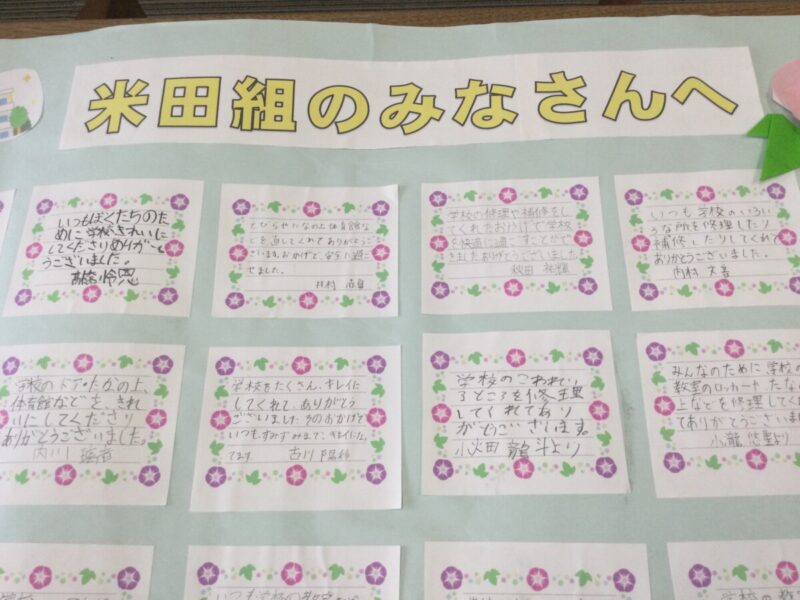 米田組のみなさんへ
いつもぼくたちのた
めに学校をきれいに
してくださりありがと
うございました。
とびらやたなの上体育館な
どを直してくれてありがとうご
ざいます。おかげで、安全に過ご
せました。
学校の修理や補修をし
てくれたおかげで学校
を快適に過ごすことがで
きましたありがとうございました
秋田
いつも学校のいろい
ろな所を修理したり
補修したりしてくれて
ありがとうございました。
内村
学校のドア・たなの上、
体育館などを、きれ
いにしてくださり
ありがとうございました。
内川
学校をたくさん、キレイに
してくれて、ありがとう
ございました。そのおかげで
いつも、すみずみまで、キレイにな
ってます 古川
学校のこわれてい
るところを修理
してくれてあり
がとうございます。
小火田 龍斗より
みんなのために学校の
教室のロッカーやたなの
上などを修理してくれ
てありがとうございま
小瀧 悠聖より
いつも学校の教室
学校の教